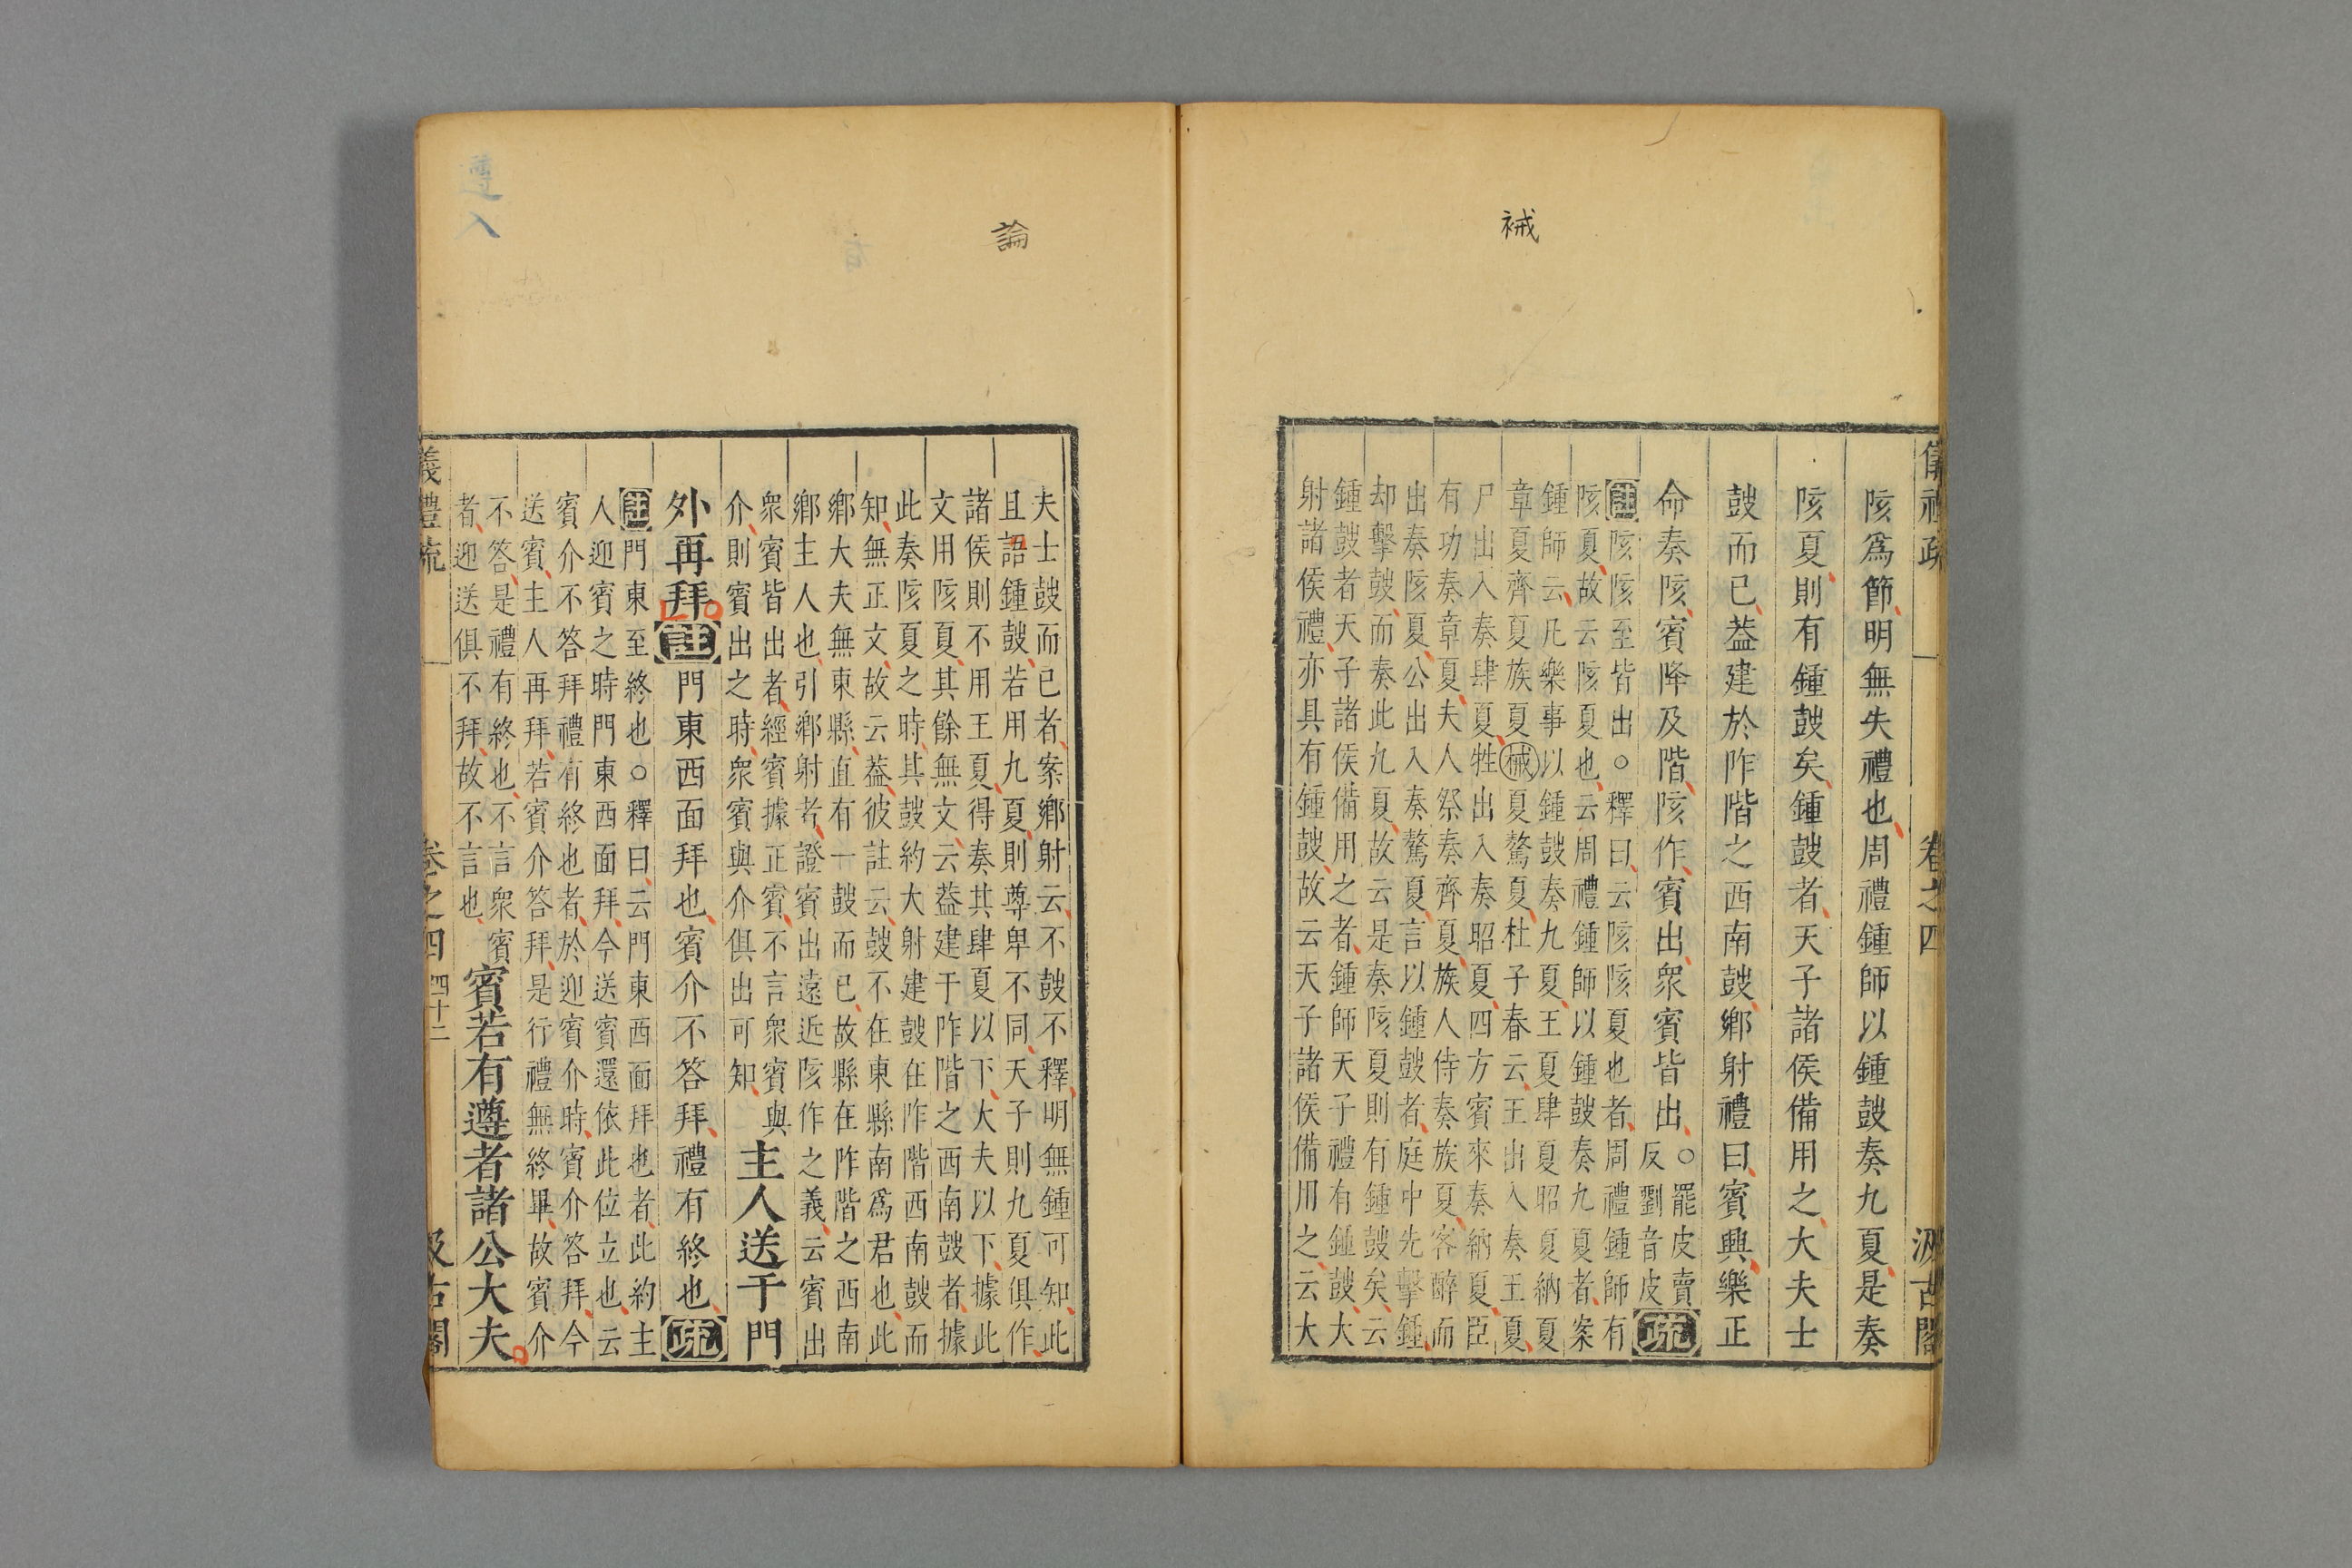 祴
陔爲節明無失禮也周禮鍾師以鍾鼓奏九夏是奏
陔夏則有鍾鼓矣鍾鼓者天子諸侯備用之大夫士
鼓而已葢建於阼階之西南鼓鄉射禮曰賓興樂正
命奏陔賓降及階陔作賓出衆賓皆出○罷皮賣
反劉音皮疏
註陔陔至皆出○釋曰云陔陔夏也者周禮鍾師有
陔夏故云陔夏也云周禮鍾師以鍾鼓奏九夏者案
鍾師云凡樂事以鍾鼓奏九夏王夏肆夏昭夏納夏
章夏齊夏族夏祴夏驁夏杜子春云王出入奏王夏
尸出入奏肆夏牲出入奏昭夏四方賓來奏納夏臣
有功奏章夏夫人祭奏齊夏族人侍奏族夏客醉而
出奏陔夏公出入奏驁夏言以鍾鼓者庭中先擊鍾
却擊鼓而奏此九夏故云是奏陔夏則有鍾鼓矣云
鍾鼓者天子諸侯備用之者鍾師天子禮有鍾鼓大
射諸侯禮亦具有鍾鼓故云天子諸侯備用之云大
論
夫士鼓而已者案鄉射云不鼓不釋明無鍾可知此
且語鍾鼓若用九夏則尊卑不同天子則九夏俱作
諸侯則不用王夏得奏其肆夏以下大夫以下據此
文用陔夏其餘無文云葢建于阼階之西南鼓者據
此奏陔夏之時其鼓約大射建鼓在阼階西南鼓而
知無正文故云葢彼註云鼓不在東縣南爲君也此
鄉大夫無東縣直有一鼓而已故縣在阼階之西南
鄉主人也引鄉射者證賓出遠近陔作之義云賓出
衆賓皆出者經賓據正賓不言衆賓與
介則賓出之時衆賓與介俱出可知
主人送于門
外再拜註門東西面拜也賓介不答拜禮有終也疏
註門東至終也○釋曰云門東西面拜也者此約主
人迎賓之時門東西面拜今送賓還依此位立也云
賓介不答拜禮有終也者於迎賓介時賓介答拜今
送賓主人再拜若賓介答拜是行禮無終畢故賓介
不答是禮有終也不言衆賓
者迎送俱不拜故不言也
賓若有遵者諸公大夫
卷之四
四十二